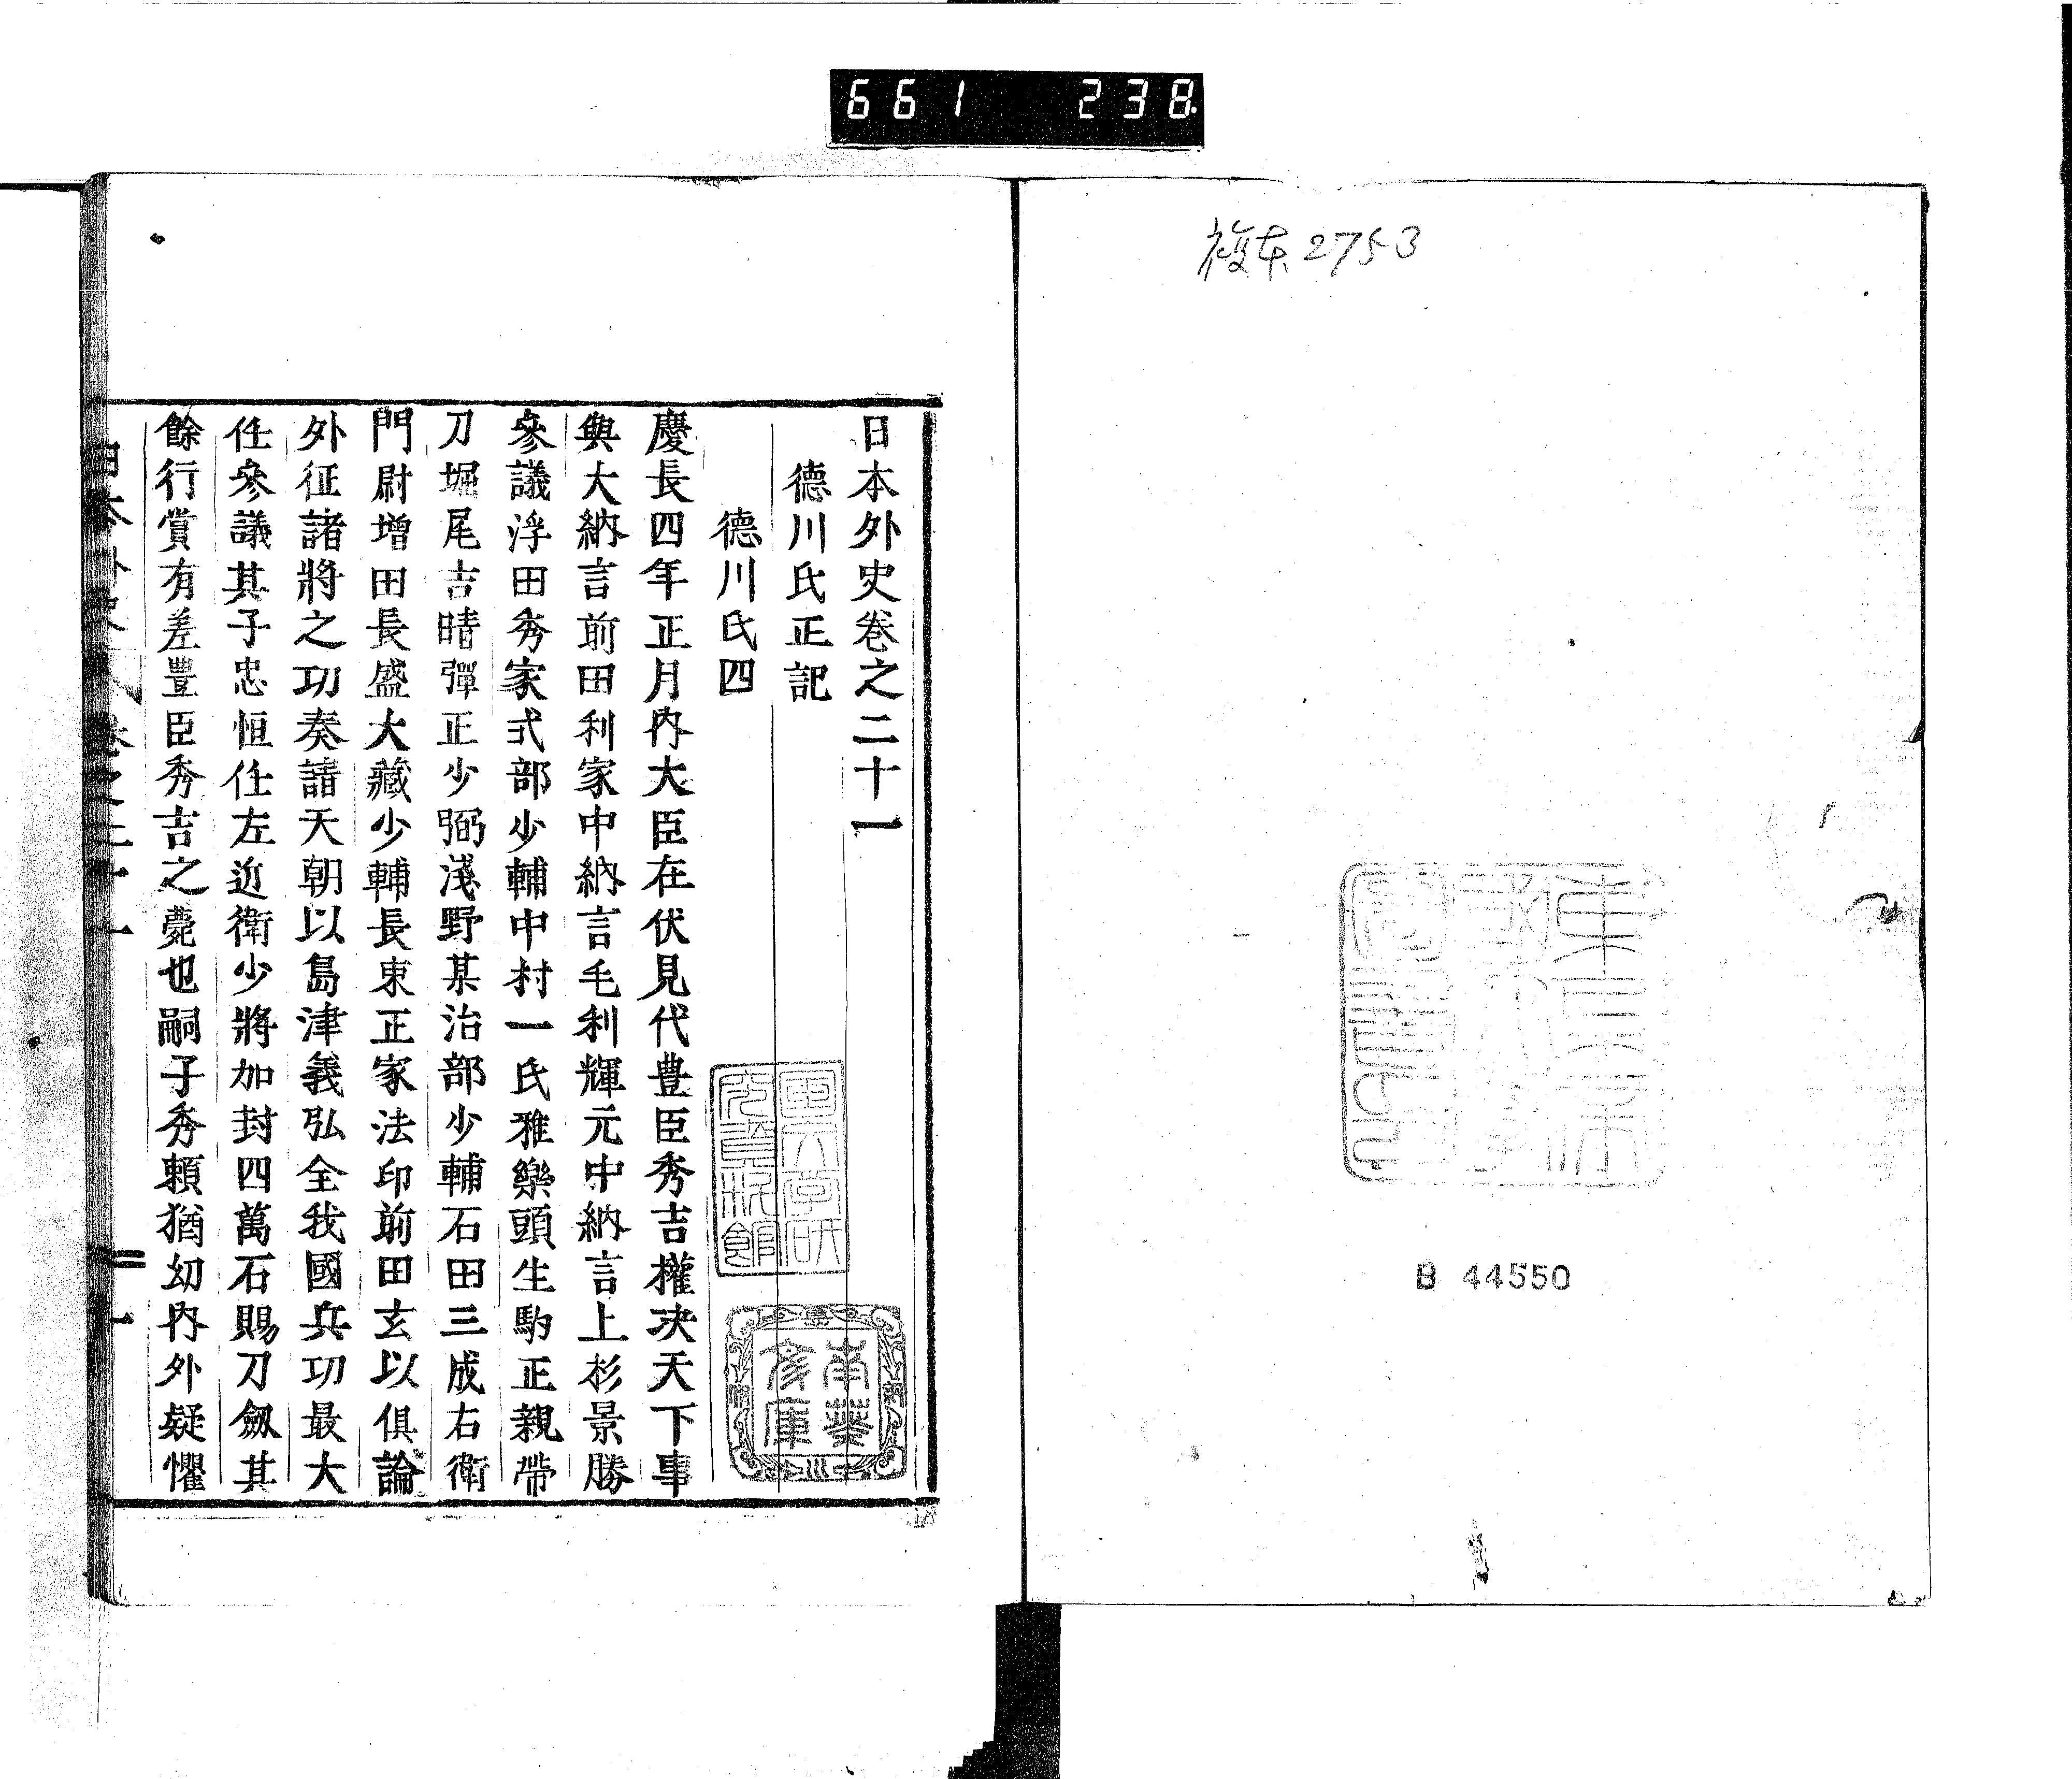 661 238
複本 2753
B 44550
日本外史卷之二十一
德川氏正記
德川氏四
慶長四年正月內大臣在伏見代豊臣秀吉權決天下事
與大納言前田利家中納言毛利輝元中納言上杉景勝
參議浮田秀家式部少輔中村一氏雅樂頭生駒正親帶
刀堀尾吉晴彈正少弼淺野某治部少輔石田三成右衛
門尉增田長盛大藏少輔長束正家法印前田玄以俱論
外征諸將之功奏請天朝以島津義弘全我國兵功最大
任參議其子忠恒任左近衛少將加封四萬石賜刀劔其
餘行賞有差豊臣秀吉之薨也嗣子秀賴猶幼內外疑懼
南華
文庫